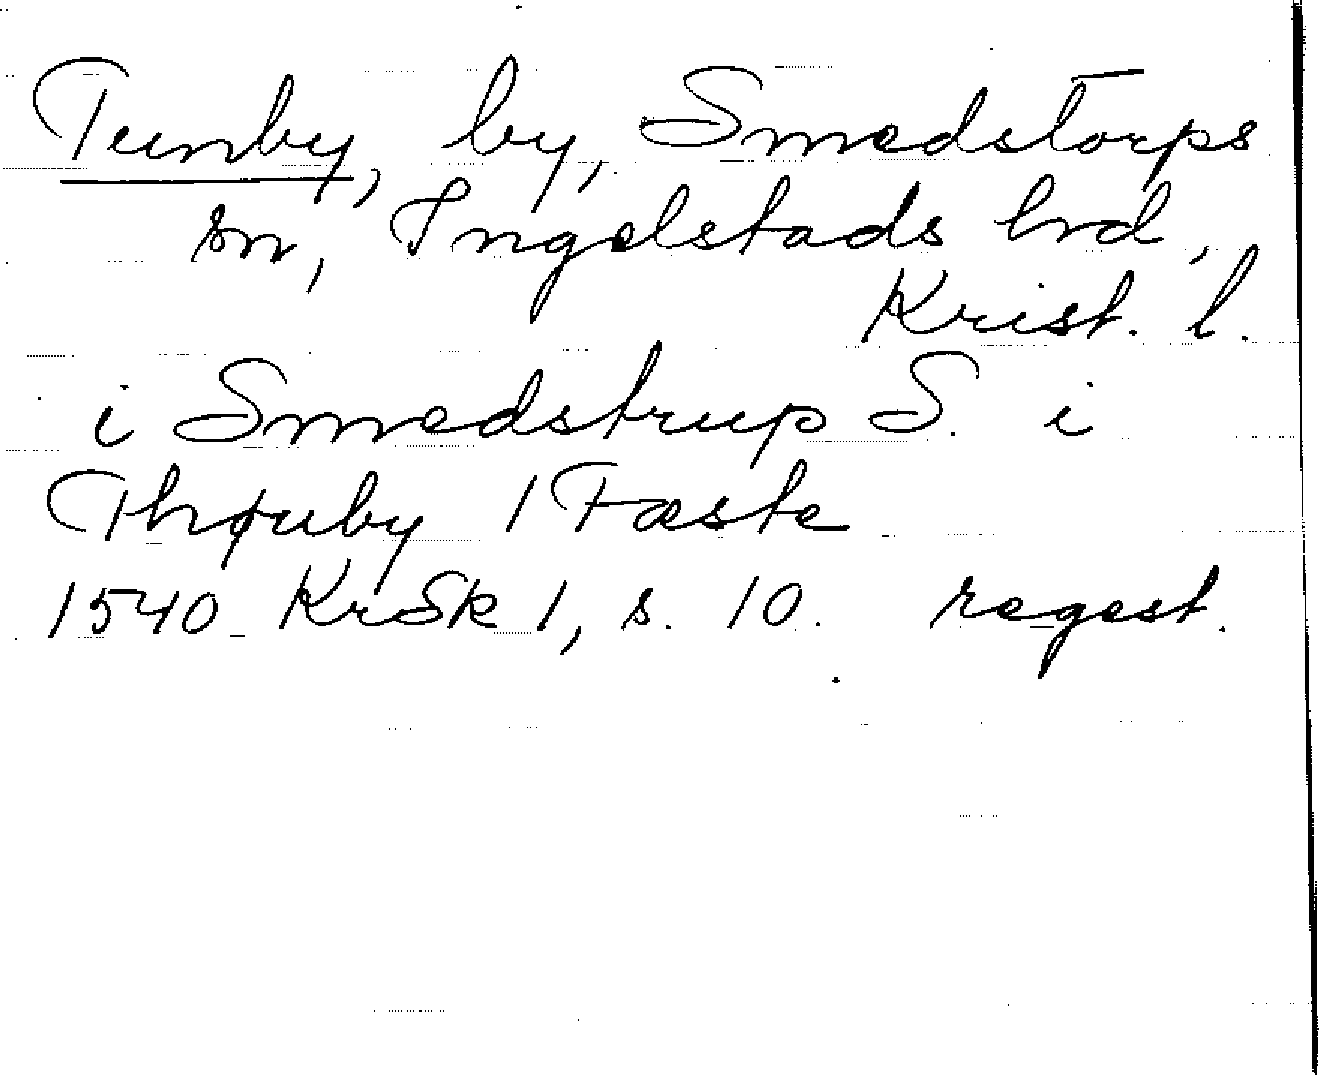 Tunby, by, Smedstorps
sn, Ingelstads hrd,
Krist. l.
i Smedstrup S. i
Thøuby 1 Fæste
1540 KrSk 1, s. 10. regest.